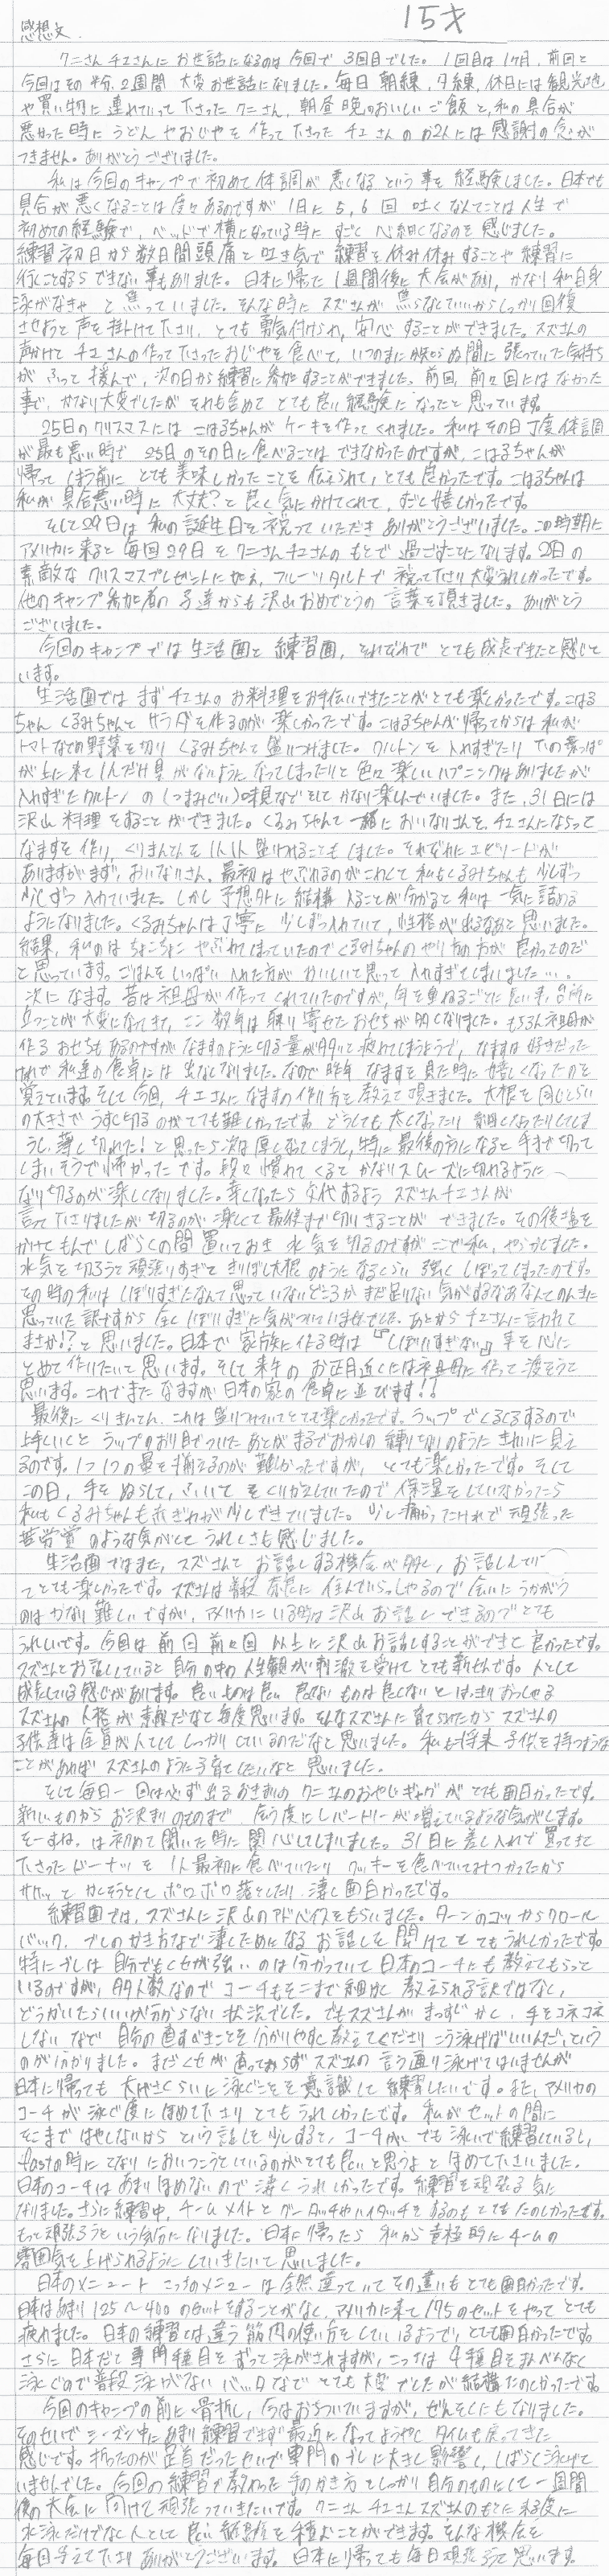 15才
感想文
クニさんチエさんにお世話になるのは今回で3回目でした。1回目は1ヶ月、前回と
今回はその半分、2週間 大変お世話になりました。毎日朝練、夕練、休日には観光地
や買い物に連れていって下さったクニさん、朝昼晩のおいしいご飯と、私の具合が
悪かった時にうどんやおじやを作って下さったチエさんのお2人には感謝の念が
つきません。ありがとうございました。
私は今回のキャンプで初めて体調が悪くなるという事を経験しました。日本でも
具合が悪くなることは度々あるのですが1日に5,6回吐くなんてことは人生で
初めての経験で、ベッドで横になっている時にすごく心細くなるのを感じました。
練習初日から数日間頭痛と吐き気で練習を休み休みすることや練習に
行くことすらできない事もありました。日本に帰った1週間後に大会があり、かなり私自身
泳がなきゃと焦っていました。そんな時にスズさんが焦らなくていいからしっかり回復
させようと声を掛けて下さり、とても勇気付けられ、安心することができました。スズさんの
声かけとチエさんの作って下さったおじやを食べて、いつのまにか知らぬ間に張っていた気持ち
がふっと緩んで、次の日から練習に参加することができました。前回、前々回にはなかった
事で、かなり大変でしたがそれも含めてとても良い経験になったと思っています。
25日のクリスマスにはこはるちゃんがケーキを作ってくれました。私はその日丁度体調
が最も悪い時で25日のその日に食べることはできなかったのですが、こはるちゃんが
帰ってしまう前にとても美味しかったことを伝えられて、とても良かったです。こはるちゃんは
私が具合悪い時に大丈夫?と良く気にかけてくれて、すごく嬉しかったです。
そして29日は私の誕生日を祝っていただきありがとうございました。この時期に
アメリカに来ると毎回29日をクニさんチエさんのもとで過ごすことになります。25日の
素敵なクリスマスプレゼントに加え、フルーツタルトで祝って下さり大変うれしかったです。
他のキャンプ参加者の子達からも沢山おめでとうの言葉を頂きました。ありがとう
ございました。
今回のキャンプでは生活面と練習面、それぞれでとても成長できたと感じて
います。
生活面ではまずチエさんのお料理をお手伝いできたことがとても楽しかったです。こはる
ちゃんくるみちゃんとサラダを作るのが楽しかったです。こはるちゃんが帰ってからは私が
トマトなどの野菜を切りくるみちゃんで盛りつけました。クルトンを入れすぎたり下の葉っぱ
が上に来て1人だけ具がないようになってしまったりと色々楽しいハプニングはありましたが
入れすぎたクルトンの(つまみぐい)味見などをしてかなり楽しんでいました。また、31日には
沢山料理をすることができました。くるみちゃんと一緒においなりさんを、チエさんにならって
なますを作り、くりきんとんを1人1人盛りつけることもしました。それぞれにエピソードが
ありますがまず、おいなりさん。最初はやぶれるのがこわくて私もくるみちゃんも少しずつ
少しずつ入れていました。しかし予想外に結構入ることが分かると私は一気に詰める
ようになりました。くるみちゃんは丁寧に少しずつ入れていて、性格が出るなあと思いました。
結果、私のはちょこちょこやぶれてしまっていたのでくるみちゃんのやり方の方が良かったのだ
と思っています。ごはんをいっぱい入れた方がおいしいと思って入れすぎてしまいました…。
次になます。昔は祖母が作ってくれていたのですが、年を重ねるごとに長い事、台所に
立つことが大変になってきて、ここ数年は取り寄せたおせちが多くなりました。もちろん祖母が
作るおせちもあるのですがなますのように切る量が多いと疲れてしまうようで、なますは好きだった
けれど私達の食卓には出なくなりました。なので昨年なますを見た時に嬉しくなったのを
覚えています。そして今回、チエさんになますの作り方を教えて頂きました。大根を同じくらい
の大きさでうすく切るのがとても難しかったですどうしても太くなったり細くなったりしてしま
うし、薄く切れた!と思ったら次は厚くなってしまうし、特に最後の方になると手まで切って
しまいそうで怖かったです。段々慣れてくるとかなりスムーズに切れるように
なり切るのが楽しくなりました。辛くなったら交代するようスズさんチエさんが
言って下さりましたが切るのが楽しくて最後まで切りきることができました。その後塩を
かけてもんでしばらくの間置いておき水気を切るのですがここで私、やらかしました。
水気を切ろうと頑張りすぎて きりぼし大根のようになるくらい強くしぼってしまったのです。
その時の私はしぼりすぎたなんて思っていないどころかまだ足りない気がするなあなんてのんきに
思っていた訳ですから全くしぼりすぎに気がついていませんでした。あとからチエさんに言われて
まさか!?と思いました。日本で家族に作る時は『しぼりすぎない』事を心に
とめて作りたいと思います。そして来年のお正月近くには祖母に作って渡そうと
思います。これでまたなますが日本の家の食卓に並びます!!
最後にくりきんとん。これは盛りつけていてとても楽しかったです。ラップでくるくるするので
上手くいくとラップのおり目でついたあとがまるでおかしの練り切りのようにきれいに見え
るのです。1つ1つの量を揃えるのが難しかったですが、とても楽しかったです。そして
この日、手をぬらして、ふいてをくりかえしていたので保湿をしていなかったら
私もくるみちゃんも赤ぎれが少しできていました。少し痛かったけれど頑張った
苦労賞のような気がしてうれしさも感じました。
生活面ではまた、スズさんとお話しする機会が多く、お話ししてい
てとても楽しかったです。スズさんは普段奈良に住んでいらっしゃるので会いにうかがう
のはかなり難しいですが、アメリカにいる時は沢山お話しできるのでとても
うれしいです。今回は前回前々回以上に沢山お話しすることができて良かったです。
スズさんとお話ししていると自分の中の人生観が刺激を受けてとても新せんです。人として
成長している感じがあります。良いものは良い良くないものは良くないとはっきりおっしゃる
スズさんの人格が素敵だなと毎度思います。そんなスズさんに育てられたからスズさんの
子供達は全員が人としてしっかりしているのだなと思いました。私も将来子供を持つような
ことがあればスズさんのように子育てしたいなと思いました。
そして毎日一回は必ず出るおきまりのクニさんのおやじギャグがとても面白かったです。
新しいものからお決まりのものまで会う度にレパートリーが増えているような気がします。
そーすね。は初めて聞いた時に関心してしまいました。31日に差し入れで買ってきて
下さったドーナッツを1人最初に食べていたりクッキーを食べていてみつかったから
サササッとかくそうとしてボロボロ落としたり、凄く面白かったです。
練習面では、スズさんに沢山のアドバイスをもらいました。ターンのコツからクロール
バック、ブレのかき方など凄くためになるお話しを聞けてとてもうれしかったです。
特にブレは自分でもくせが強いのは分かっていて日本のコーチにも教えてもらって
いるのですが、多人数なのでコーチもそこまで細かく教えられる訳ではなく、
どうかいたらいいか分からない状況でした。でもスズさんがまっすぐかく、手をコネコネ
しないなどで自分の直すべきことを分かりやすく教えてくださりこう泳げばいいんだ、という
のが分かりました。まだくせが直っておらずスズさんの言う通り泳げてはいませんが
日本に帰っても大げさくらいに泳ぐことを意識して練習したいです。また、アメリカの
コーチが泳ぐ度にほめて下さりとてもうれしかったです。私がセットの間に
そこまではやくしないからという話しを少しすると、コーチがでも泳いで練習しているし、
fastの時にとなりにおいつこうとしているのがとても良いと思うよとほめて下さいました。
日本のコーチはあまりほめないので凄くうれしかったです。練習を頑張る気に
なりました。さらに練習中、チームメイトとグータッチやハイタッチをするのもとてもたのしかったです。
もっと頑張ろうという気分になりました。日本に帰ったら私から積極的にチームの
雰囲気を上げられるようにしていきたいと思いました。
日本のメニューとこっちのメニューは全然違っていてその違いもとても面白かったです。
日本は余り125〜400のセットをすることがなく、アメリカに来て175のセットをやってとても
疲れました。日本の練習とは違う筋肉の使い方をしているようで、とても面白かったです。
さらに日本だと専門種目をずっと泳がされますが、こっちは4種目をまんべんなく
泳ぐので普段泳がないバッタなどとても大変でしたが結構たのしかったです。
今回のキャンプの前に骨折し、今はおちついていますが、ぜんそくにもなりました。
そのせいでシーズン中にあまり練習できず最近になってようやくタイムも戻ってきた
感じです。折ったのが左肩だったせいで専門のブレに大きく影響し、しばらく泳げて
いませんでした。今回の練習で教わった手のかき方をしっかり自分のものにして一週間
後の大会に向けて頑張っていきたいです。クニさんチエさんスズさんのもとに来る度に
水泳だけでなく人として良い経験を積むことができます。そんな機会を
毎回与えて下さりありがとうございます。日本に帰っても毎日頑張ろうと思います。